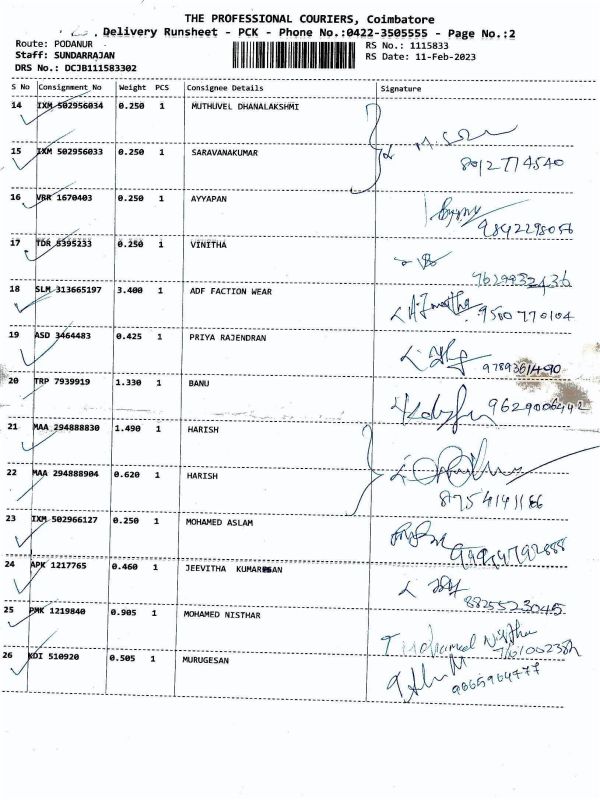 THE PROFESSIONAL COURIERS, Coimbatore
Delivery Runsheet - PCK - Phone No.:0422-3505555 - Page No.:2
Route: PODANUR
Staff: SUNDARRAJAN
DRS No.: DCJB111583302
RS No.: 1115833
RS Date: 11-Feb-2023
S No Consignment No Weight PCS Consignee Details Signature
14 IXM 502956034 0.250 1 MUTHUVEL DHANALAKSHMI
15 IXM 502956033 0.250 1 SARAVANAKUMAR 8012774540
16 VRR 1670403 0.250 1 AYYAPAN 9842298056
17 TDR 8395233 0.250 1 VINITHA 9629932436
18 SLM 313665197 3.400 1 ADF FACTION WEAR 9500770104
19 ASD 3464483 0.425 1 PRIYA RAJENDRAN 9789361490
20 TRP 7939919 1.330 1 BANU 9629006442
21 MAA 294888830 1.490 1 HARISH
22 MAA 294888904 0.620 1 HARISH 8754141186
23 IXM 502966127 0.250 1 MOHAMED ASLAM
24 APK 1217765 0.460 1 JEEVITHA KUMARESAN 8825523045
25 PMK 1219840 0.905 1 MOHAMED NISTHAR Mohamed
26 KDI 510920 0.505 1 MURUGESAN